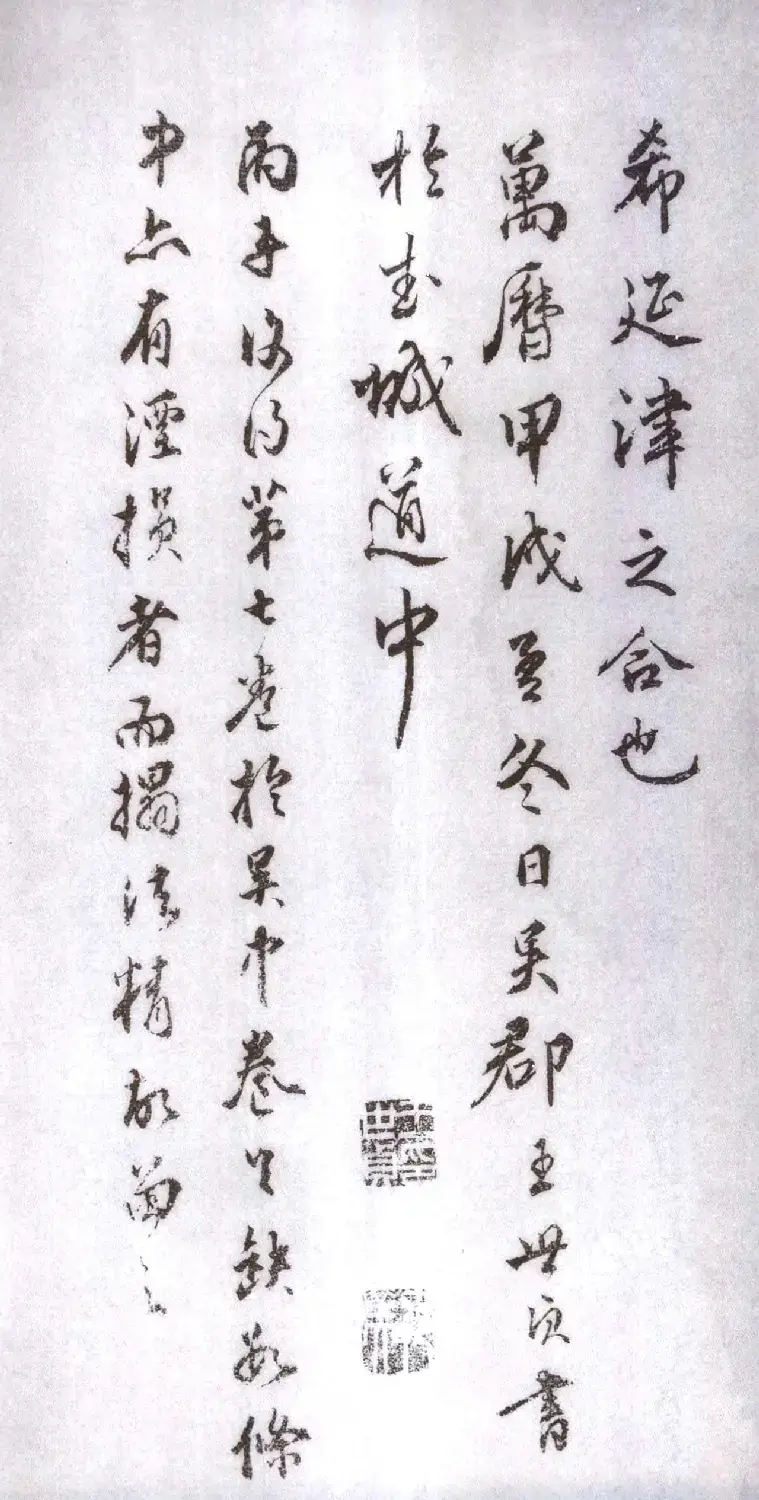 希延津之合也
萬曆甲戌孟冬日吳郡王世貞書
於城道中
丙子得第七卷於吳中卷缺數條
中亦有湮損者而搨法精故留之